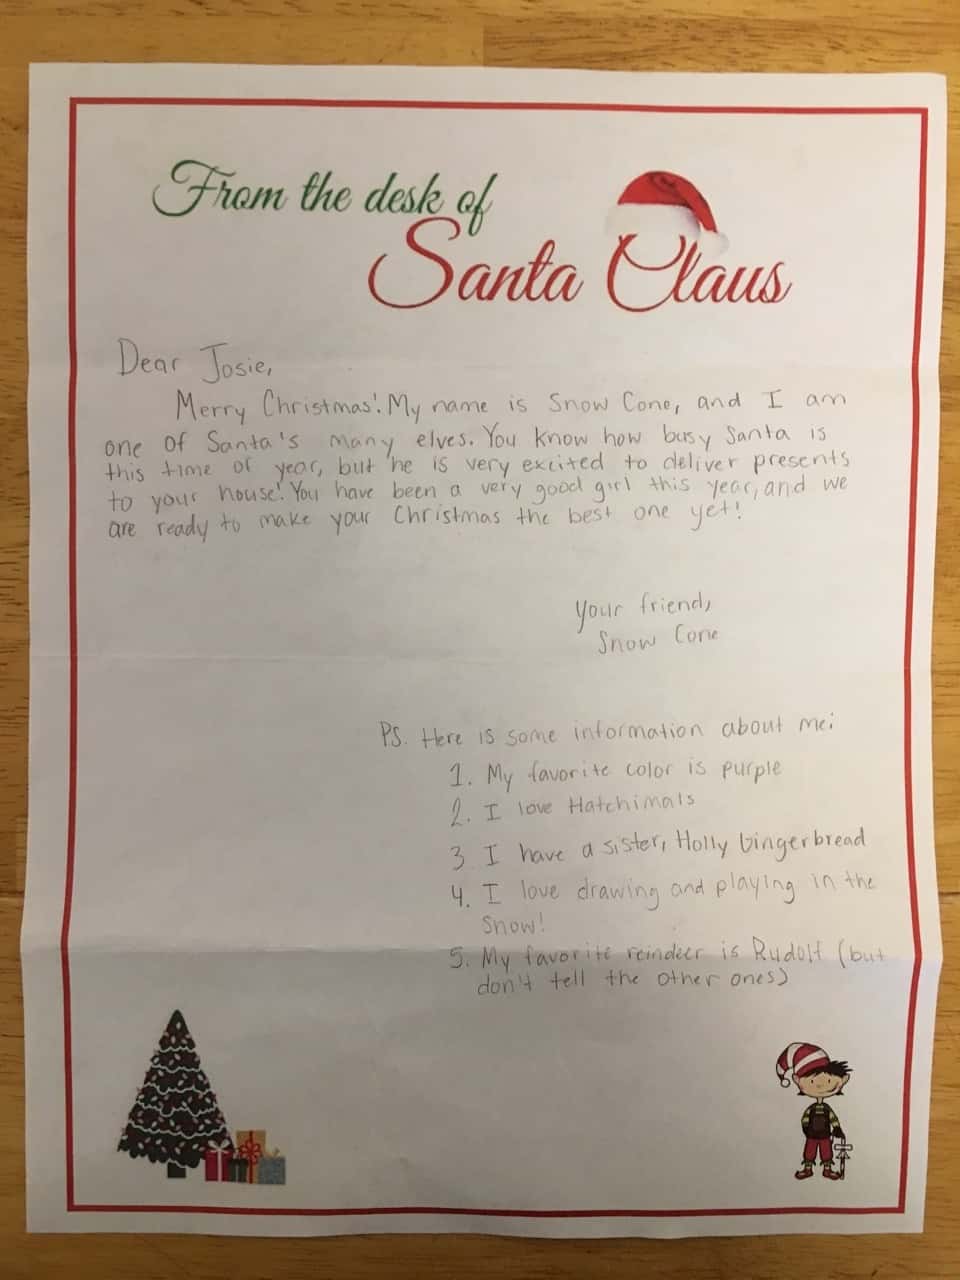 From the desk of
Santa Claus
Dear Josie,
Merry Christmas! My name is Snow Cone, and I am
one of Santa's many elves. You know how busy Santa is
this time of year, but he is very excited to deliver presents
to your house! You have been a very good girl this year, and we
are ready to make your Christmas the best one yet!
Your friend,
Snow Cone
PS. Here is some information about me:
1. My favorite color is purple
2. I love Hatchimals
3. I have a sister, Holly Gingerbread
4. I love drawing and playing in the
snow!
5. My favorite reindeer is Rudolf (but
don't tell the other ones)